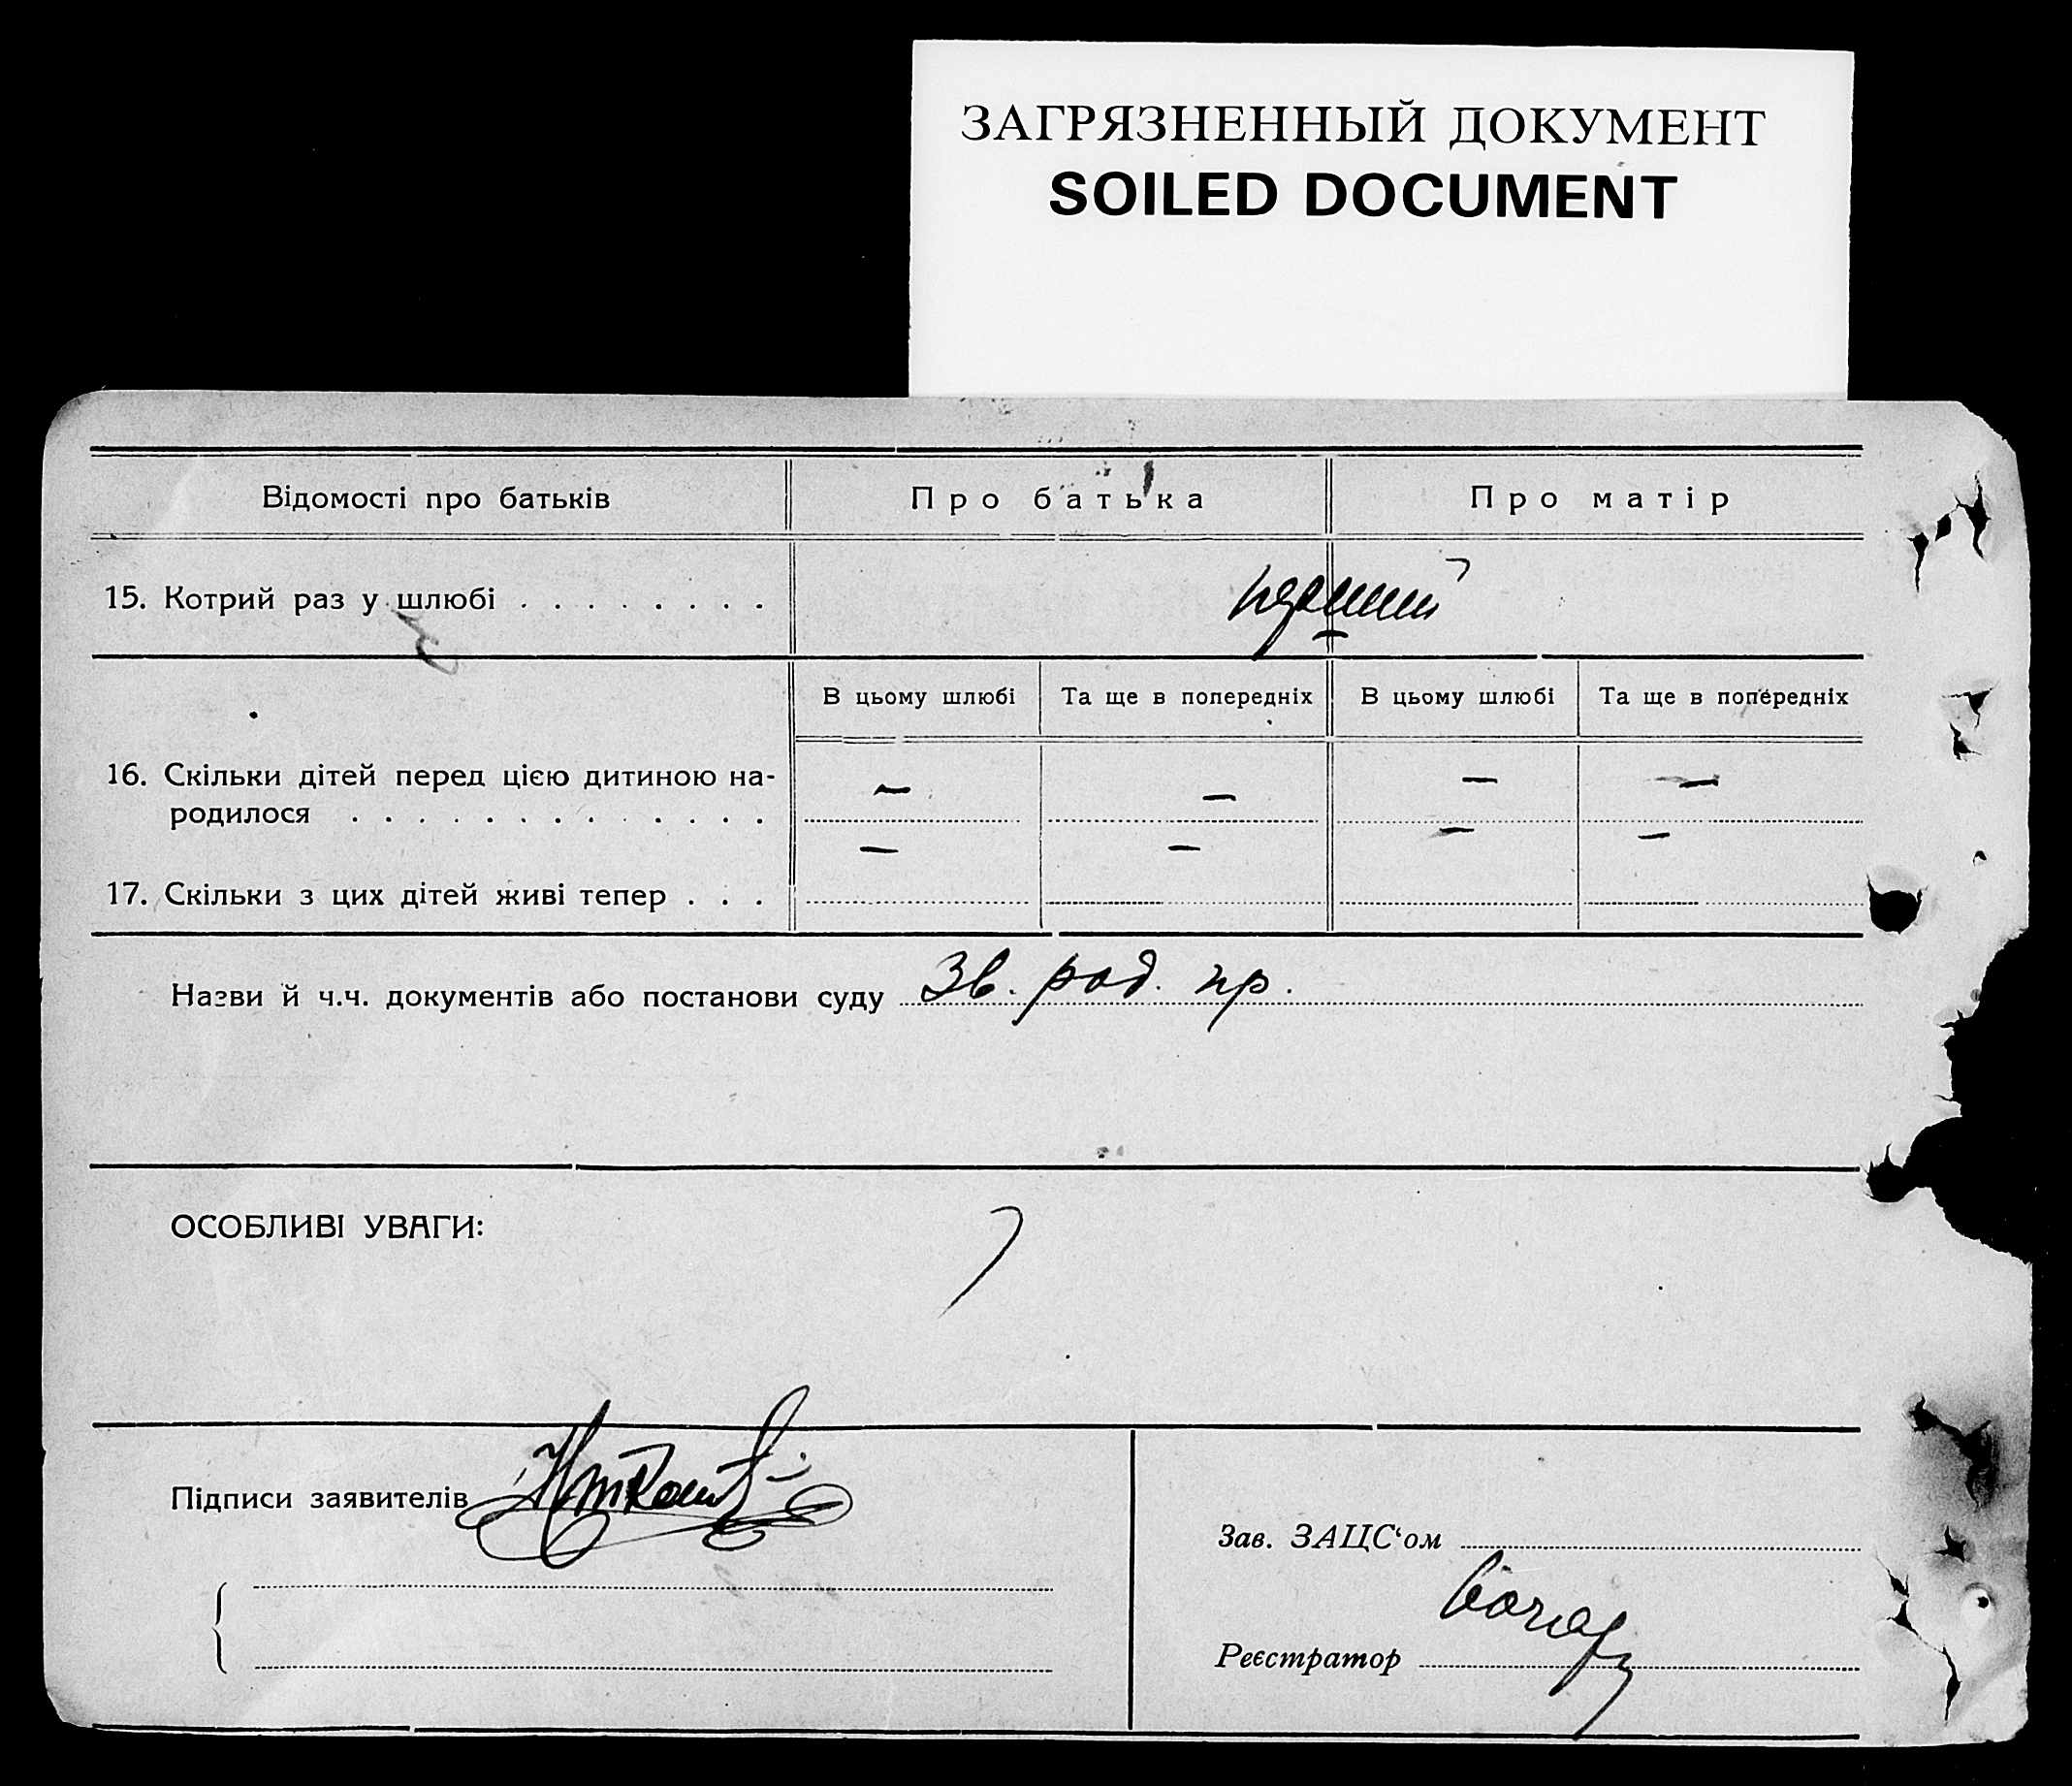 ЗАГРЯЗНЕННЫЙ ДОКУМЕНТ
SOILED DOCUMENT
Відомості про батьків Про батька Про матір
15. Котрий раз у шлюбі . . . . . . . .
В цьому шлюбі Та ще в попередніх В цьому шлюбі Та ще в попередніх
16. Скільки дітей перед цією дитиною на- — — — —
родилося . . . . . . . . . . . . .
— — — —
17. Скільки з цих дітей живі тепер . . .
Назви й ч.ч. документів або постанови суду Зв. род. пр.
ОСОБЛИВІ УВАГИ:
Підписи заявителів
Зав. ЗАЦС‘ом
Реєстратор